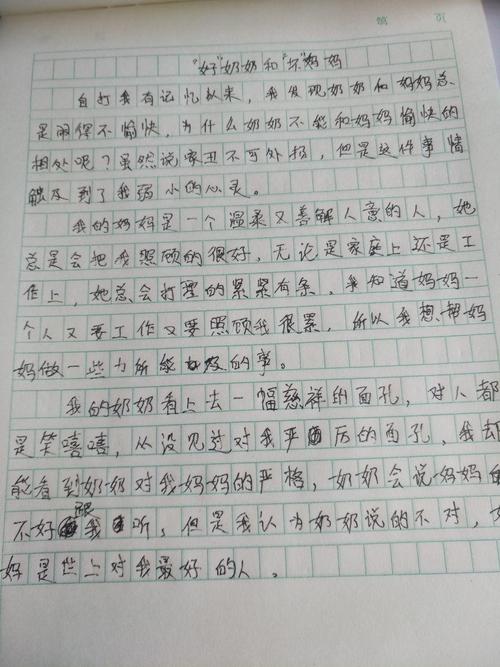 第 页
"好"奶奶和"坏"妈妈
自打我有记忆以来，我发现奶奶和妈妈总
是闹得不愉快，为什么奶奶不能和妈妈愉快的
相处呢？虽然说家丑不可外扬，但是这件事情
触及到了我弱小的心灵。
我的妈妈是一个温柔又善解人意的人，她
总是会把我照顾的很好，无论是家庭上还是工
作上，她总会打理的紧紧有条，我知道妈妈一
个人又要工作又要照顾我很累，所以我想帮妈
妈做一些力所能及的事。
我的奶奶看上去一幅慈祥的面孔，对人都
是笑嘻嘻，从没见过对我严厉的面孔，我却
能看到奶奶对我妈妈的严格，奶奶会说妈妈的
不好跟我听，但是我认为奶奶说的不对，
妈是世上对我最好的人。